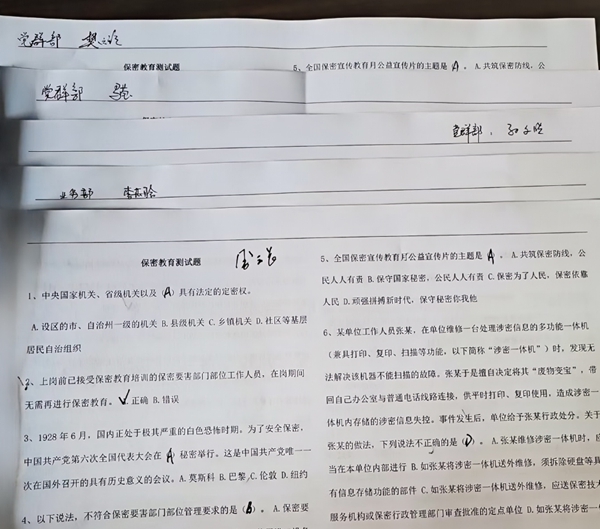 党群部
保密教育测试题
5、全国保密宣传教育月公益宣传片的主题是 A 。 A.共筑保密防线，公
党群部
党群部
业务部
保密教育测试题
1、中央国家机关、省级机关以及（A）具有法定的定密权。
A.设区的市、自治州一级的机关 B.县级机关 C.乡镇机关 D.社区等基层
居民自治组织
2、上岗前已接受保密教育培训的保密要害部门部位工作人员，在岗期间
无需再进行保密教育。 ✓正确 B.错误
3、1928 年 6 月，国内正处于极其严重的白色恐怖时期。为了安全保密，
中国共产党第六次全国代表大会在 A 秘密举行。这是中国共产党唯一一
次在国外召开的具有历史意义的会议。A.莫斯科 B.巴黎 C.伦敦 D.纽约
4、以下说法，不符合保密要害部门部位管理要求的是（B）。 A.保密要
5、全国保密宣传教育月公益宣传片的主题是 A 。 A.共筑保密防线，公
民人人有责 B.保守国家秘密，公民人人有责 C.保密为了人民，保密依靠
人民 D.顽强拼搏新时代，保守秘密你我他
6、某单位工作人员张某，在单位维修一台处理涉密信息的多功能一体机
（兼具打印、复印、扫描等功能，以下简称“涉密一体机”）时，发现无
法解决该机器不能扫描的故障。张某于是擅自决定将其“废物变宝”，带
回自己办公室与普通电话线路连接，供平时打印、复印使用，造成涉密一
体机内存储的涉密信息失控。事件发生后，单位给予张某行政处分。关于
张某的做法，下列说法不正确的是（D）。 A.张某维修涉密一体机时，应
当在本单位内部进行 B.如张某将涉密一体机送外维修，须拆除硬盘等具
有信息存储功能的部件 C.如张某将涉密一体机送外维修，应送保密技术
服务机构或保密行政管理部门审查批准的定点单位 D.如张某将涉密一体